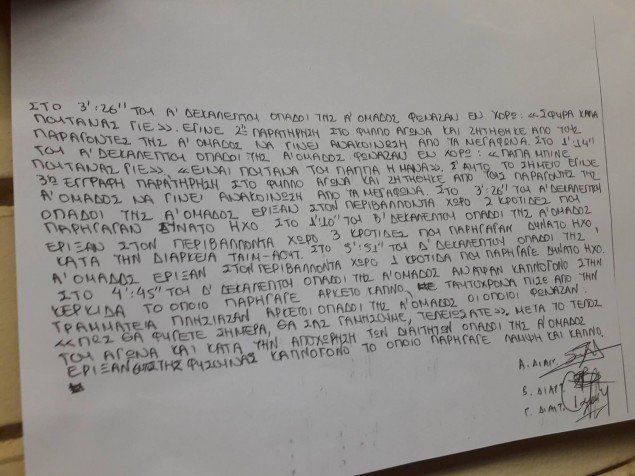 ΣΤΟ 3':26'' ΤΟΥ Α' ΔΕΚΑΛΕΠΤΟΥ ΟΠΑΔΟΙ ΤΗΣ Α' ΟΜΑΔΟΣ ΦΩΝΑΖΑΝ ΕΝ ΧΟΡΩ: «ΣΦΥΡΑ ΚΑΠΑ
ΠΟΥΤΑΝΑΣ ΓΙΕ». ΕΓΙΝΕ 2η ΠΑΡΑΤΗΡΗΣΗ ΣΤΟ ΦΥΛΛΟ ΑΓΩΝΑ ΚΑΙ ΖΗΤΗΘΗΚΕ ΑΠΟ ΤΟΥΣ
ΠΑΡΑΓΟΝΤΕΣ ΤΗΣ Α' ΟΜΑΔΟΣ ΝΑ ΓΙΝΕΙ ΑΝΑΚΟΙΝΩΣΗ ΑΠΟ ΤΑ ΜΕΓΑΦΩΝΑ. ΣΤΟ 1':14''
ΤΟΥ Α' ΔΕΚΑΛΕΠΤΟΥ ΟΠΑΔΟΙ ΤΗΣ Α' ΟΜΑΔΟΣ ΦΩΝΑΖΑΝ ΕΝ ΧΟΡΩ: «ΠΑΠΑ ΜΠΙΝΕ
ΠΟΥΤΑΝΑΣ ΓΙΕ», «ΕΙΝΑΙ ΠΟΥΤΑΝΑ ΤΟΥ ΠΑΠΠΑ Η ΜΑΝΑ». Σ' ΑΥΤΟ ΤΟ ΣΗΜΕΙΟ ΕΓΙΝΕ
3η ΕΓΓΡΑΦΗ ΠΑΡΑΤΗΡΗΣΗ ΣΤΟ ΦΥΛΛΟ ΑΓΩΝΑ ΚΑΙ ΖΗΤΗΘΗΚΕ ΑΠΟ ΤΟΥΣ ΠΑΡΑΓΟΝΤΕΣ ΤΗΣ
Α' ΟΜΑΔΟΣ ΝΑ ΓΙΝΕΙ ΑΝΑΚΟΙΝΩΣΗ ΑΠΟ ΤΑ ΜΕΓΑΦΩΝΑ. ΣΤΟ 3':26'' ΤΟΥ Α' ΔΕΚΑΛΕΠΤΟΥ
ΟΠΑΔΟΙ ΤΗΣ Α' ΟΜΑΔΟΣ ΕΡΙΞΑΝ ΣΤΟΝ ΠΕΡΙΒΑΛΛΟΝΤΑ ΧΩΡΟ 2 ΚΡΟΤΙΔΕΣ ΠΟΥ
ΠΑΡΗΓΑΓΑΝ ΔΥΝΑΤΟ ΗΧΟ. ΣΤΟ 1':10'' ΤΟΥ Β' ΔΕΚΑΛΕΠΤΟΥ ΟΠΑΔΟΙ ΤΗΣ Α' ΟΜΑΔΟΣ
ΕΡΙΞΑΝ ΣΤΟΝ ΠΕΡΙΒΑΛΛΟΝΤΑ ΧΩΡΟ 3 ΚΡΟΤΙΔΕΣ ΠΟΥ ΠΑΡΗΓΑΓΑΝ ΔΥΝΑΤΟ ΗΧΟ
ΚΑΤΑ ΤΗΝ ΔΙΑΡΚΕΙΑ ΤΑΙΜ-ΑΟΥΤ. ΣΤΟ 5':51'' ΤΟΥ Δ' ΔΕΚΑΛΕΠΤΟΥ ΟΠΑΔΟΙ ΤΗΣ
Α' ΟΜΑΔΟΣ ΕΡΙΞΑΝ ΣΤΟΝ ΠΕΡΙΒΑΛΛΟΝΤΑ ΧΩΡΟ 1 ΚΡΟΤΙΔΑ ΠΟΥ ΠΑΡΗΓΑΓΕ ΔΥΝΑΤΟ ΗΧΟ.
ΣΤΟ 4':45'' ΤΟΥ Δ' ΔΕΚΑΛΕΠΤΟΥ ΟΠΑΔΟΙ ΤΗΣ Α' ΟΜΑΔΟΣ ΑΝΑΨΑΝ ΚΑΠΝΟΓΟΝΟ ΣΤΗΝ
ΚΕΡΚΙΔΑ ΤΟ ΟΠΟΙΟ ΠΑΡΗΓΑΓΕ ΑΡΚΕΤΟ ΚΑΠΝΟ. ΤΑΥΤΟΧΡΟΝΑ ΠΙΣΩ ΑΠΟ ΤΗΝ
ΓΡΑΜΜΑΤΕΙΑ ΠΛΗΣΙΑΣΑΝ ΑΡΚΕΤΟΙ ΟΠΑΔΟΙ ΤΗΣ Α' ΟΜΑΔΟΣ ΟΙ ΟΠΟΙΟΙ ΦΩΝΑΖΑΝ:
«ΠΩΣ ΘΑ ΦΥΓΕΤΕ ΣΗΜΕΡΑ, ΘΑ ΣΑΣ ΓΑΜΗΣΟΥΜΕ, ΤΕΛΕΙΩΣΑΤΕ». ΜΕΤΑ ΤΟ ΤΕΛΟΣ
ΤΟΥ ΑΓΩΝΑ ΚΑΙ ΚΑΤΑ ΤΗΝ ΑΠΟΧΩΡΗΣΗ ΤΩΝ ΔΙΑΙΤΗΤΩΝ ΟΠΑΔΟΙ ΤΗΣ Α' ΟΜΑΔΟΣ
ΕΡΙΞΑΝ ΤΗΣ ΦΥΣΟΥΝΑΣ ΚΑΠΝΟΓΟΝΟ ΤΟ ΟΠΟΙΟ ΠΑΡΗΓΑΓΕ ΛΑΜΨΗ ΚΑΙ ΚΑΠΝΟ.
Α. ΔΙΑΙΤ.
Β. ΔΙΑΙΤ.
Γ. ΔΙΑΙΤ.